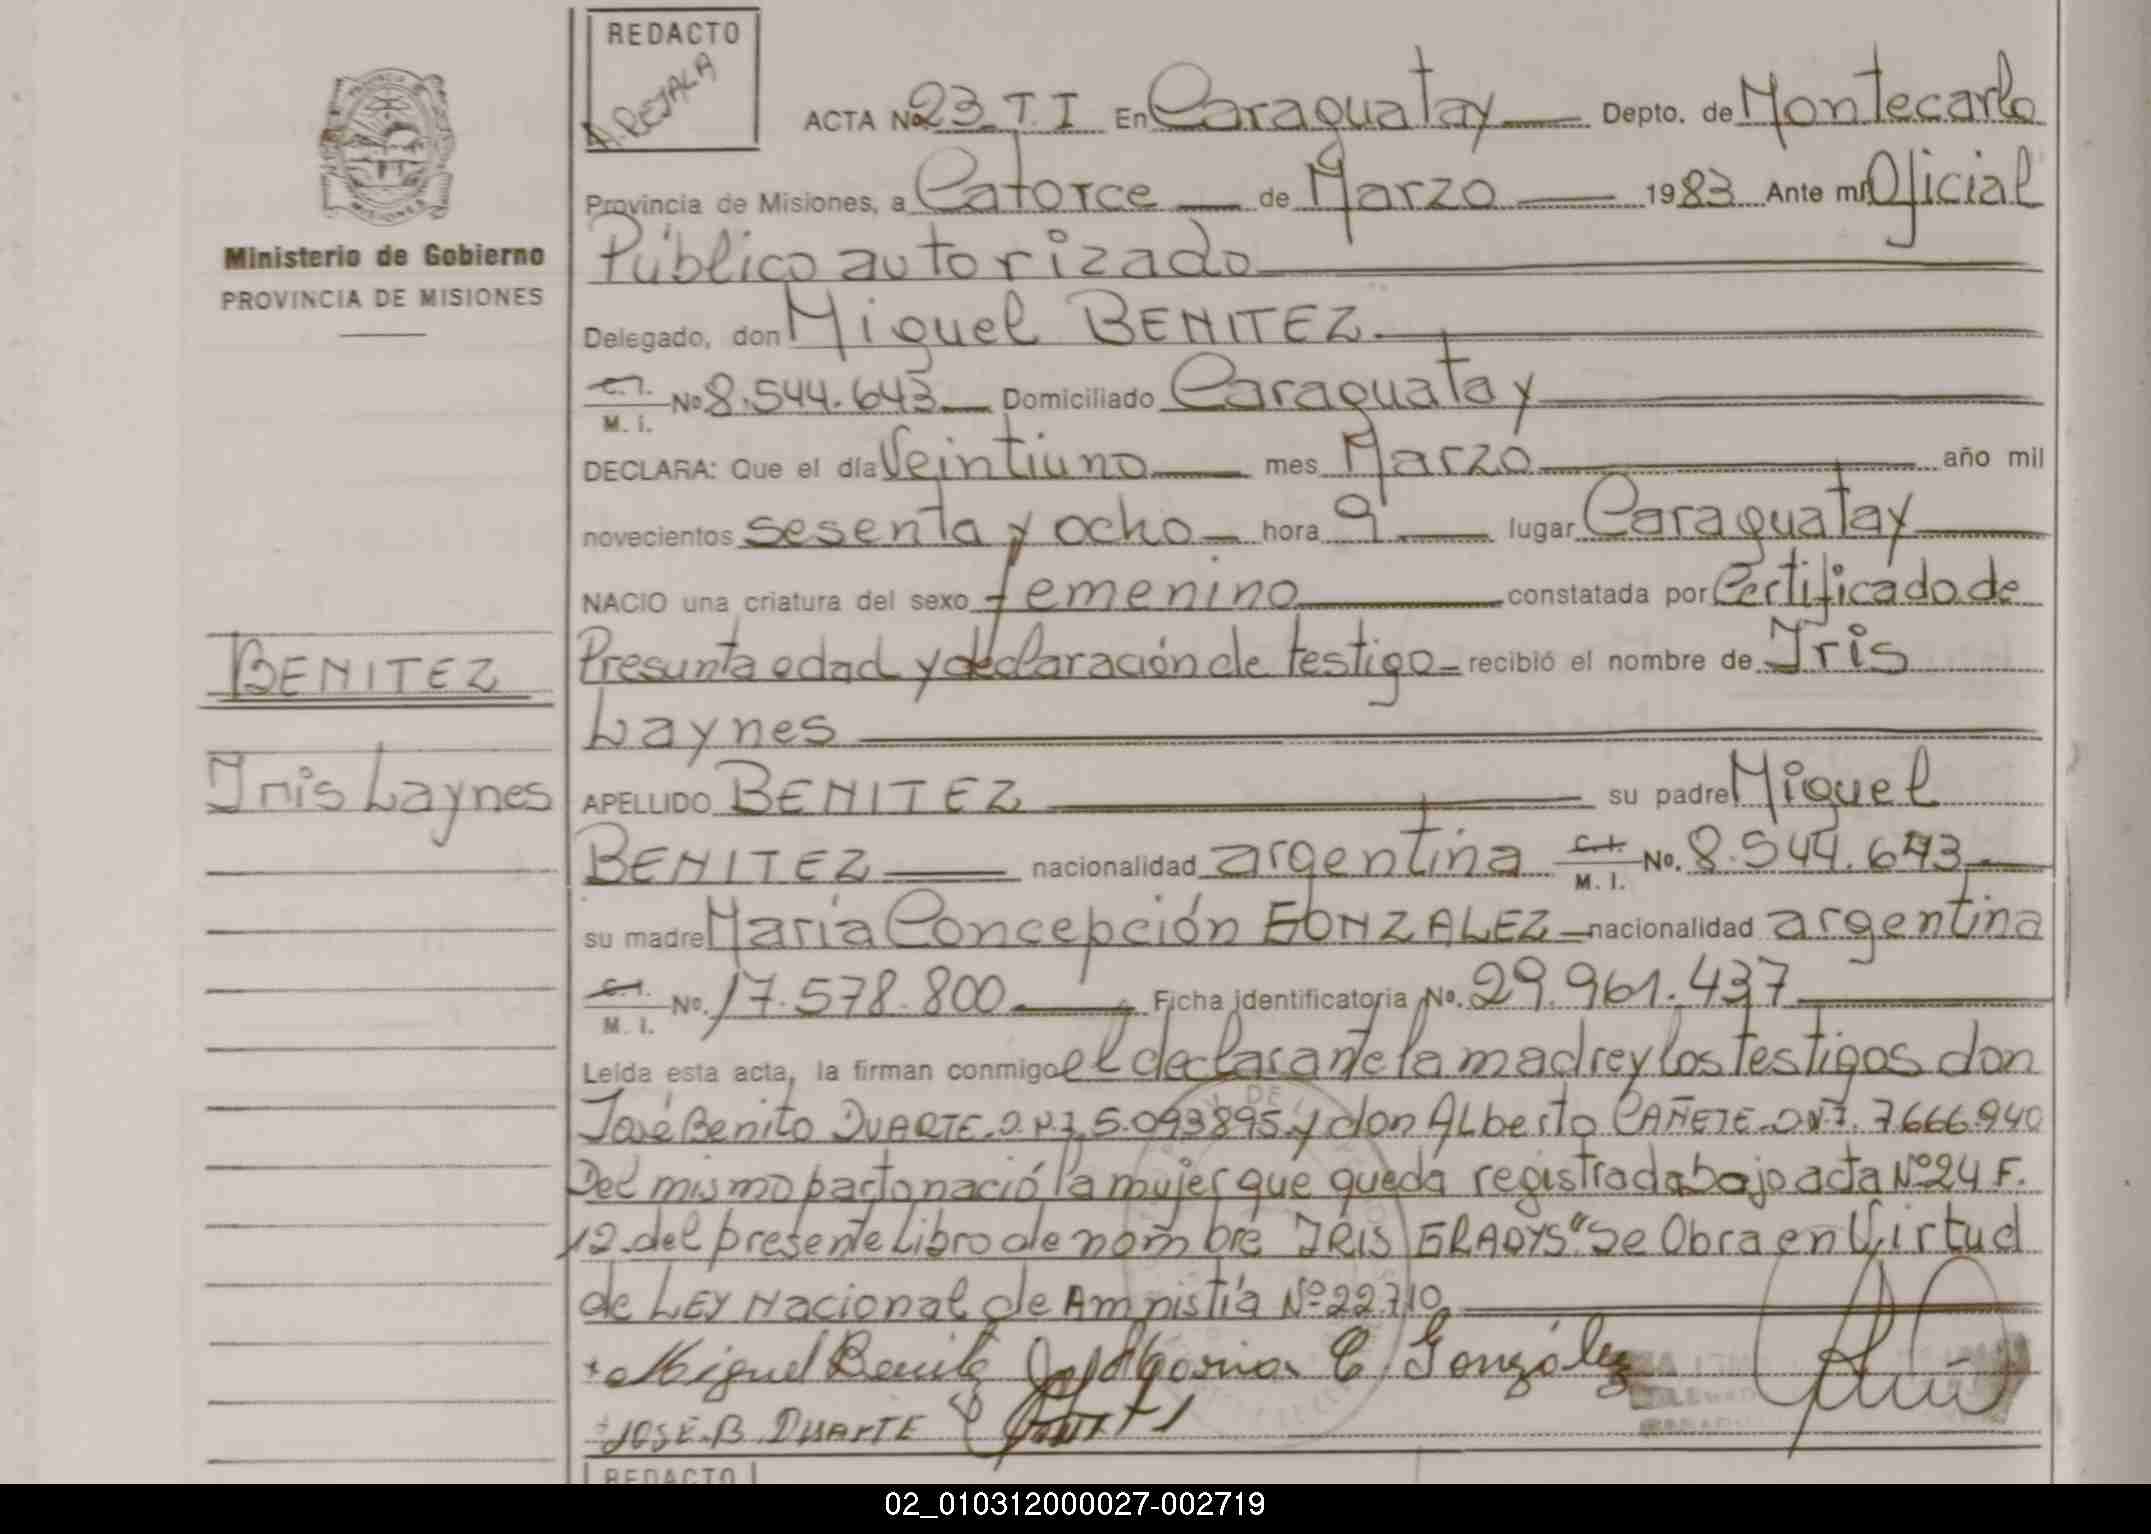 REDACTO
A. REJALA
ACTA Nº 23 T. I En Caraguatay Depto. de Montecarlo
Provincia de Misiones, a Catorce de Marzo 1983 Ante mí Oficial
Público autorizado
Delegado, don Miguel BENITEZ
C.I. M. I. Nº 8.544.643 Domiciliado Caraguatay
DECLARA: Que el día Veintiuno mes Marzo año mil
novecientos sesenta y ocho hora 9 lugar Caraguatay
NACIO una criatura del sexo femenino constatada por Certificado de
Presunta edad y declaración de testigo recibió el nombre de Iris
Laynes
APELLIDO BENITEZ su padre Miguel
BENITEZ nacionalidad argentina C.I. M. I. No. 8.544.643
su madre María Concepción GONZALEZ nacionalidad argentina
C.I. M. I. No. 17.578.800 Ficha identificatoria No. 29.961.437
Leída esta acta, la firman conmigo el declarante la madre y los testigos don
José Benito DUARTE. D.N.I. 5.093895. y don ALberto CAÑETE. D.N.I. 7.666.940
Del mismo parto nació la mujer que queda registrada bajo acta Nº 24 F.
12. del presente Libro de nombre IRIS GRADYS" Se Obra en Virtud
de LEY Nacional de Amnistía Nº 22710
Miguel Benitez María C. González
JOSÉ. B. DUARTE
REDACTO
Ministerio de Gobierno
PROVINCIA DE MISIONES
BENITEZ
Iris Laynes
02_010312000027-002719